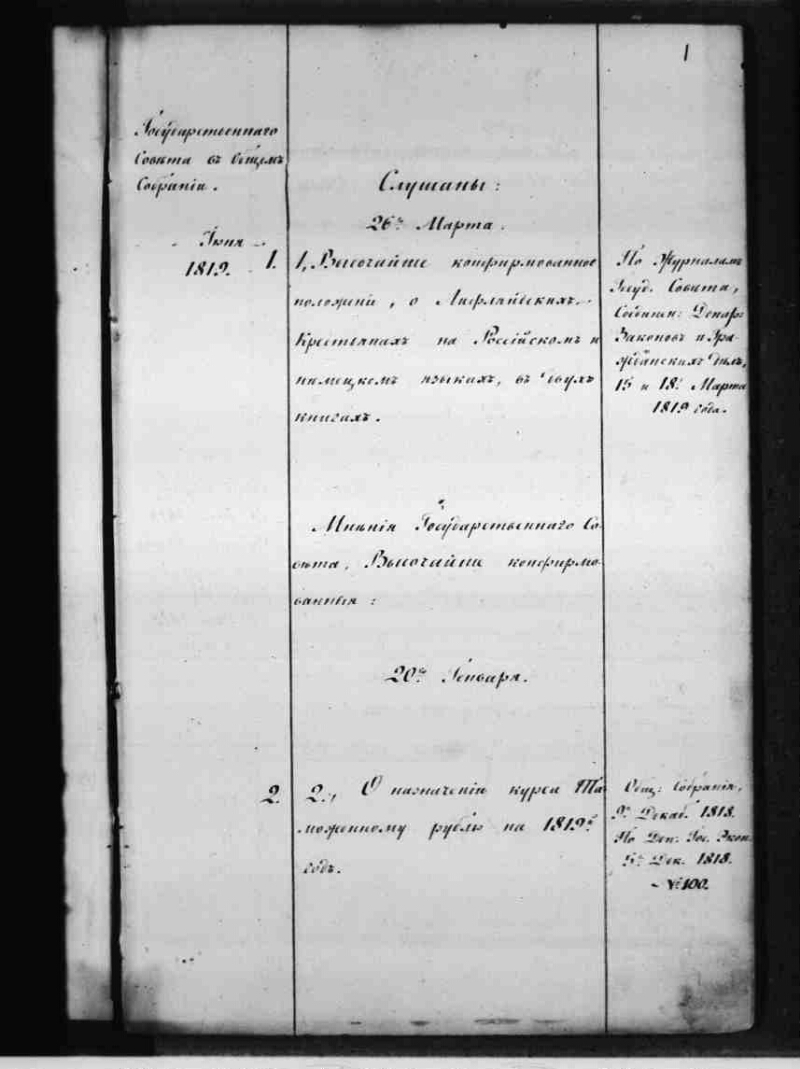 1
Государственнаго
Совѣта въ Общемъ
Собраніи.
Іюня
1819.
Слушаны:
26го Марта.
1.
1, Высочайше конфирмованное
положеніе, о Лифляндскихъ
Крестьянахъ на Россійскомъ и
нѣмецкомъ языкахъ, въ двухъ
книгахъ.
По Журналамъ
Госуд. Совѣта,
Соединен: Депар:
Законовъ и Гра-
жданскихъ дѣлъ,
15 и 18. Марта
1819 года.
Мнѣнія Государственнаго Со-
вѣта, Высочайше конфирмо-
ванныя:
20го Генваря.
2.
2., О назначеніи курса Та-
моженному рублю на 1819й
годъ.
Общ: Собранія,
9го Декаб. 1818.
По Деп. Гос. Экон.
5го Дек. 1818.
№ 100.